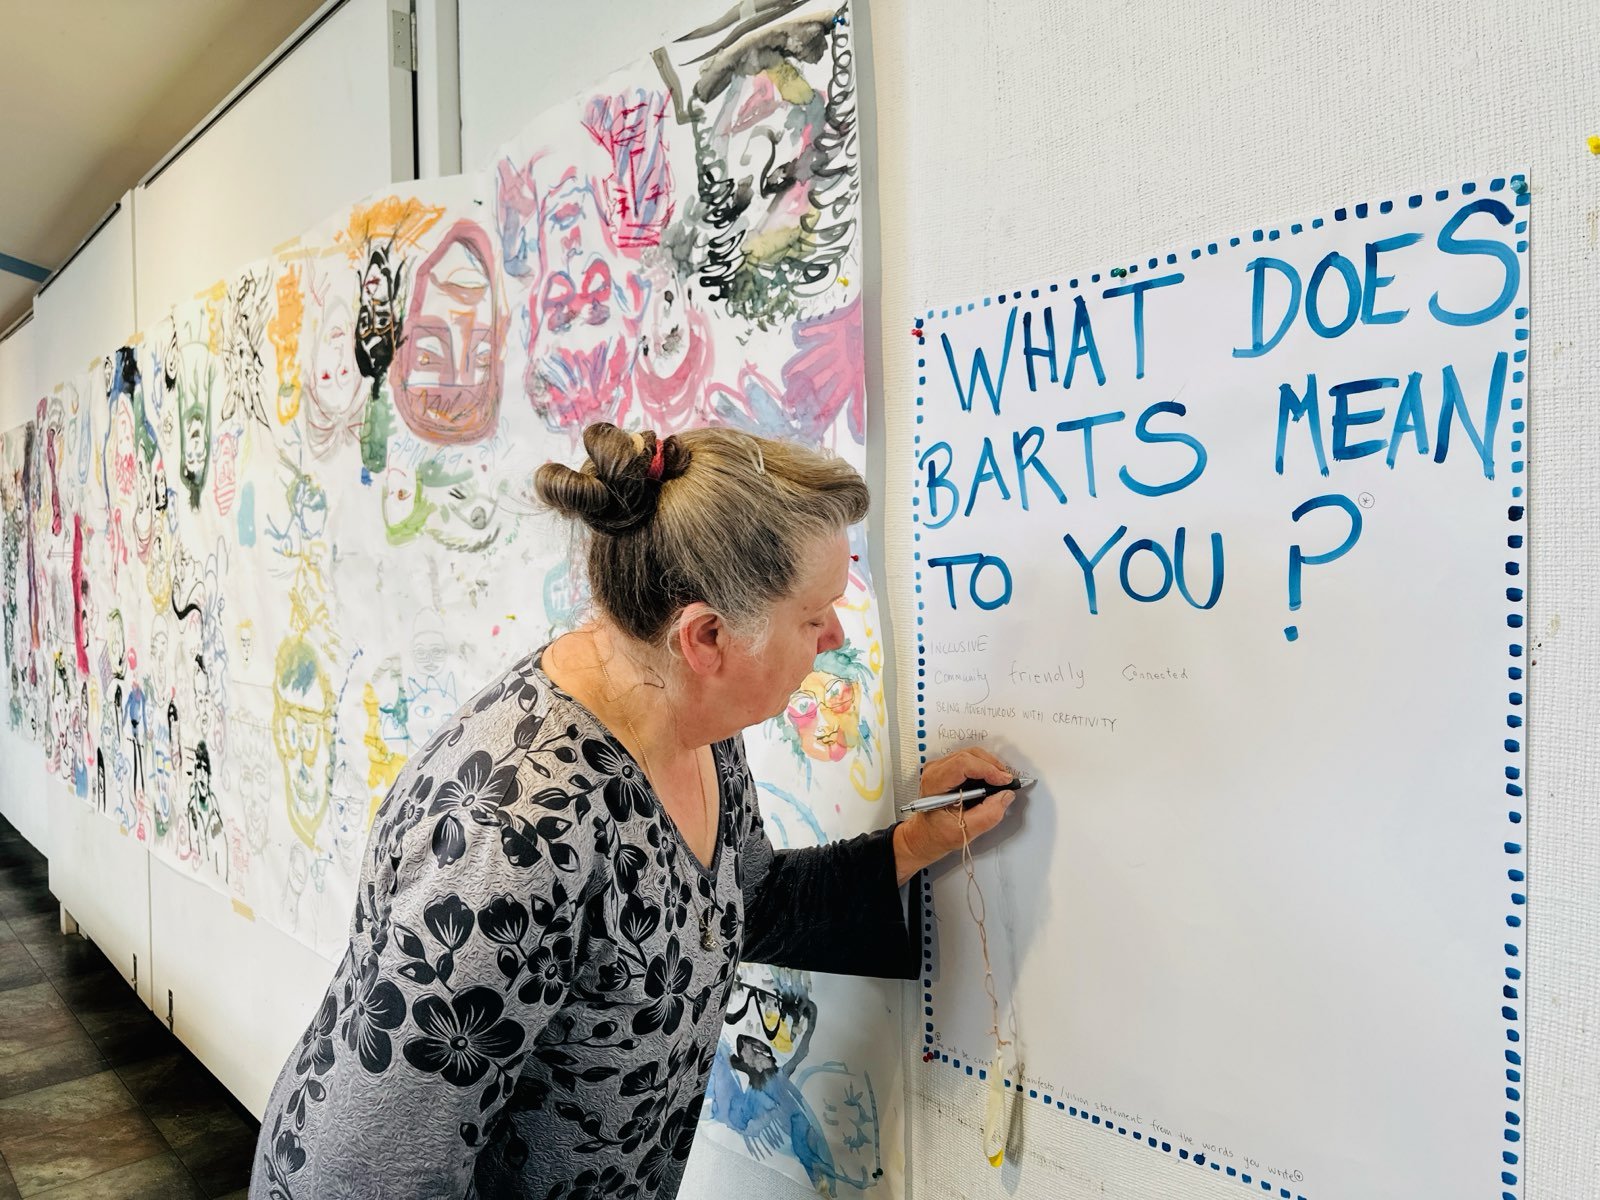 WHAT DOES
BARTS MEAN
TO YOU ?
INCLUSIVE
Community friendly Connected
BEING ADVENTUROUS WITH CREATIVITY
FRIENDSHIP
manifesto / vision statement from the words you write